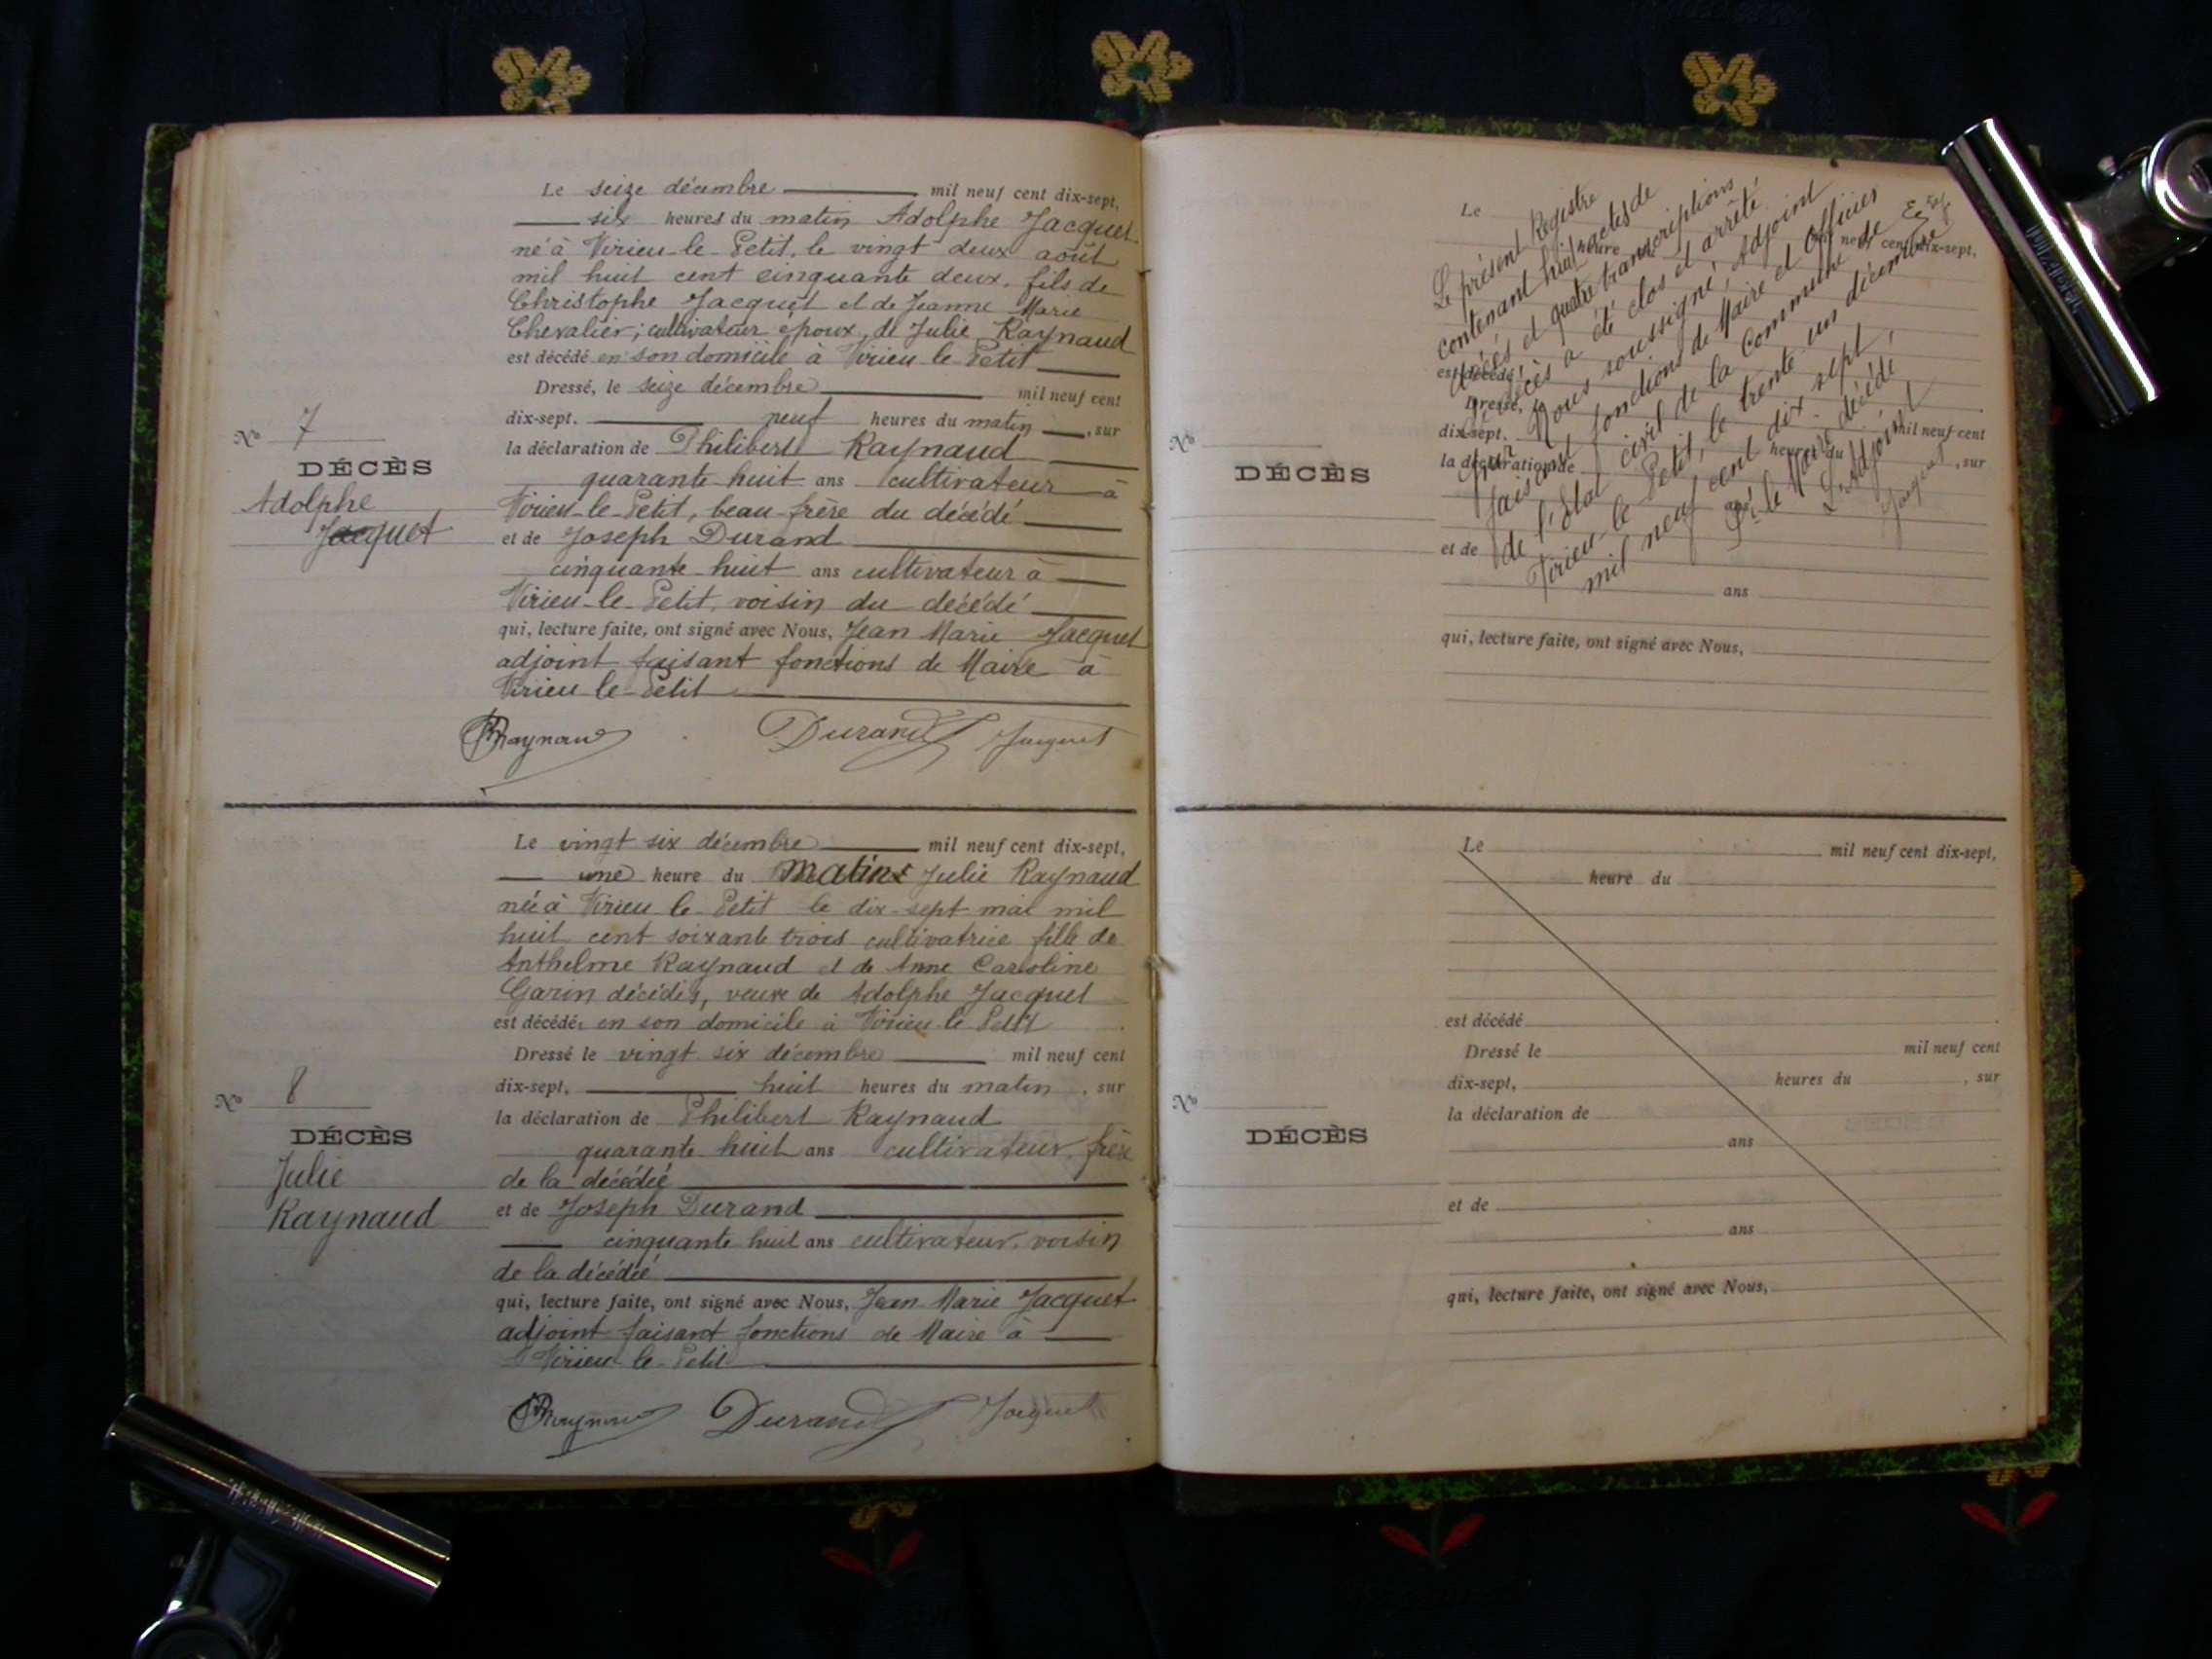 Le seize décembre mil neuf cent dix-sept,
six heures du matin Adolphe Jacquet
né à Virieu-le-Petit, le vingt deux août
mil huit cent cinquante deux, fils de
Christophe Jacquet et de Jeanne Marie
Chevalier; cultivateur époux de Julie Raynaud
est décédé en son domicile à Virieu-le-Petit
Dressé, le seize décembre mil neuf cent
dix-sept. neuf heures du matin, sur
la déclaration de Philibert Raynaud
quarante huit ans cultivateur à
Virieu-le-Petit, beau-frère du décédé
et de Joseph Durand
cinquante-huit ans cultivateur à
Virieu-le-Petit, voisin du décédé
qui, lecture faite, ont signé avec Nous, Jean Marie Jacquet
adjoint faisant fonctions de Maire à
Virieu-le-Petit
Raynaud Durand Jacquet
No 7
DÉCÈS
Adolphe
Jacquet
Le vingt six décembre mil neuf cent dix-sept,
une heure du matin Julie Raynaud
née à Virieu le Petit le dix-sept mai mil
huit cent soixante trois cultivatrice fille de
Anthelme Raynaud et de Anne Caroline
Garin décédés, veuve de Adolphe Jacquet
est décédée en son domicile à Virieu le Petit
Dressé le vingt six décembre mil neuf cent
dix-sept, huit heures du matin, sur
la déclaration de Philibert Raynaud
quarante huit ans cultivateur, frère
de la décédée
et de Joseph Durand
cinquante huit ans cultivateur, voisin
de la décédée
qui, lecture faite, ont signé avec Nous, Jean Marie Jacquet
adjoint faisant fonctions de Maire à
Virieu le Petit
Raynaud Durand Jacquet
No 8
DÉCÈS
Julie
Raynaud
Le mil neuf cent dix-sept,
heure
est décédé
Dressé, le mil neuf cent
dix-sept. heures du , sur
la déclaration de
et de
ans
qui, lecture faite, ont signé avec Nous,
No
DÉCÈS
Le présent Registre
contenant huit actes de
décès et quatre transcriptions
de décès a été clos et arrêté
par Nous soussigné, Adjoint
faisant fonctions de Maire et Officier
de l'État civil de la Commune de
Virieu-le-Petit, le trente un décembre
mil neuf cent dix sept,
Pr le Maire décédé
L'Adjoint
Jacquet
Le mil neuf cent dix-sept,
heure du
est décédé
Dressé le mil neuf cent
dix-sept, heures du , sur
la déclaration de
ans
et de
ans
qui, lecture faite, ont signé avec Nous,
No
DÉCÈS